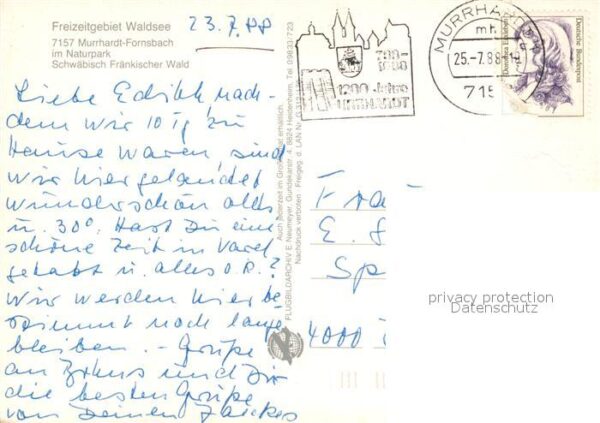 Freizeitgebiet Waldsee
7157 Murrhardt-Fornsbach
im Naturpark
Schwäbisch Fränkischer Wald
23.7.88
Liebe Edith, nach-
dem wir 10 Tg. zu
Hause waren, sind
wir hier gelandet
wunderschön alles
u. 30°. Hast Du eine
schöne Zeit in Varel
gehabt u. alles O.K.?
Wir werden hier be-
stimmt noch lange
bleiben. - Grüße
an und Dir
die besten Grüße
von Deinen
Auch jederzeit im Großformat erhältlich.
FLUGBILDARCHIV E. Neumeyer, Gundekarstr. 4, 8824 Heidenheim, Tel 09833/723
Nachdruck verboten Freigeg. d. LAN Nr.
788-
1988
1200 Jahre
MURRHARDT
MURRHARDT
mh
25.-7.88-
715
Deutsche Bundespost
Fra
E. S
Sp
4000
privacy protection
Datenschutz